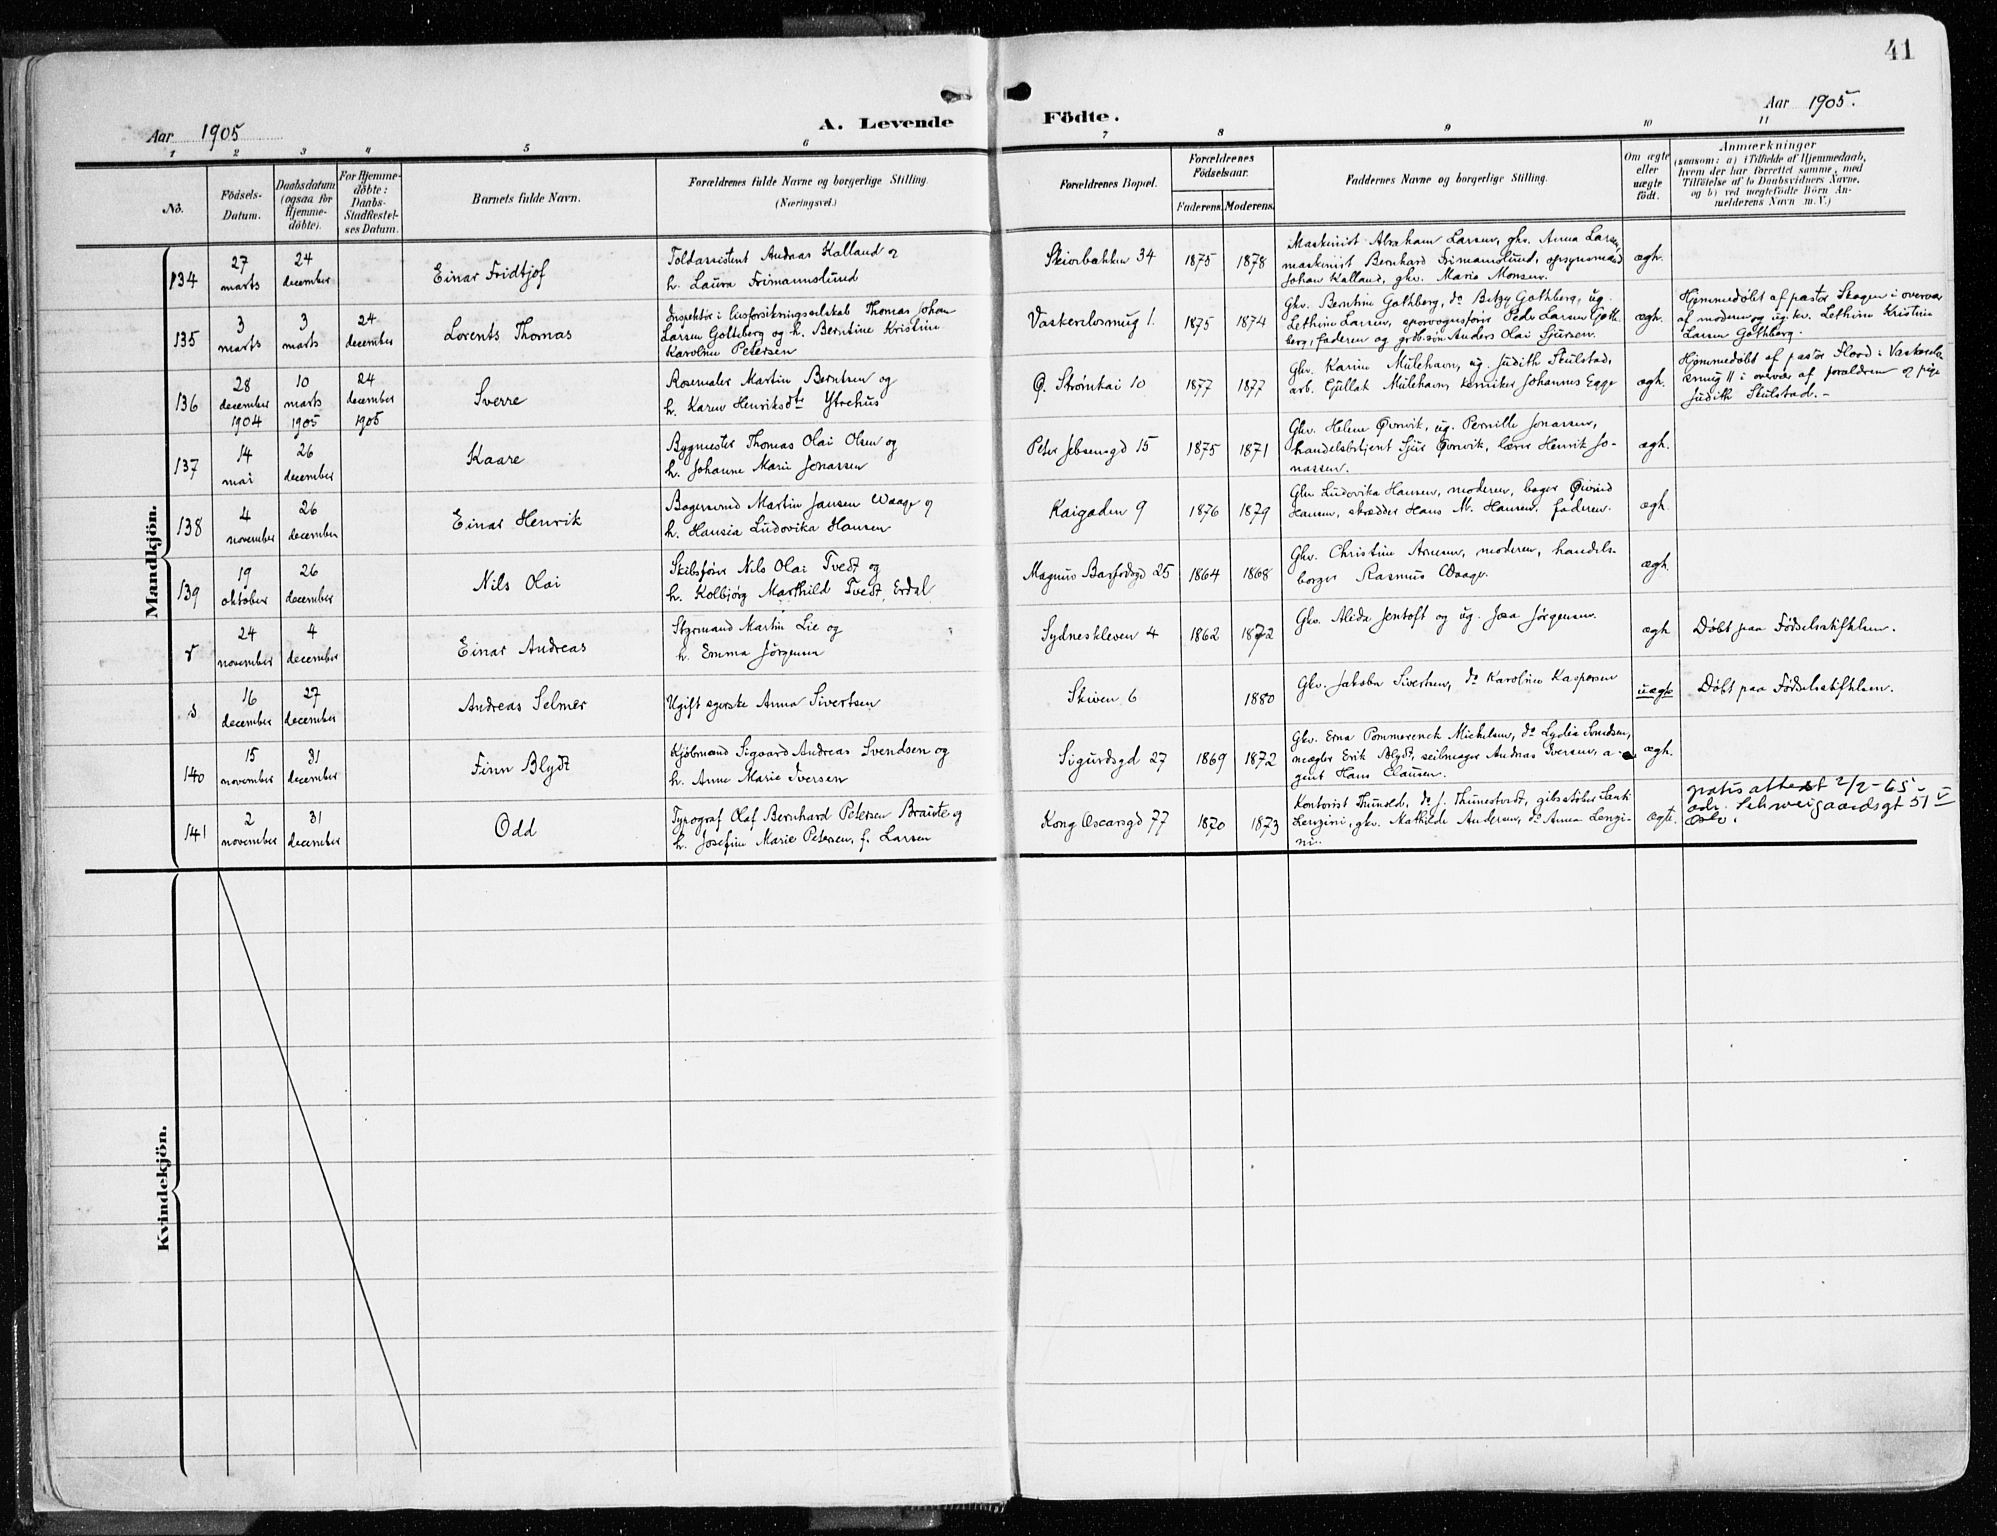 41
Aar 1905
A. Levende Födte.
Aar 1905.
1 2 3 4 5 6 7 8 9 10 11
No.
Födsels-
Datum.
Daabsdatum
(ogsaa for
Hjemme-
döbte).
For Hjemme-
döbte:
Daabs-
Stadfæstel-
ses Datum.
Barnets fulde Navn.
Forældrenes fulde Navne og borgerlige Stilling.
(Næringsvei.)
Forældrenes Bopæl.
Forældrenes
Födselsaar.
Faderens. Moderens.
Faddernes Navne og borgerlige Stilling.
Om ægte
eller
uægte
födt.
Anmærkninger
(saasom: a) i Tilfælde af Hjemmedaab,
hvem der har forrettet samme, med
Tilföielse af to Daabsvidners Navne,
og b) ved uægtefödte Börn An-
melderens Navn m. V.)
Mandkjön.
134
27
marts
24
december
Einar Fridtjof
Toldassistent Andreas Kalland og
h. Laura Frimannslund
Skiorbakken 34
1875
1878
Maskinist Abraham Larsen, gkv. Anna Larsen,
maskinist Bernhard Frimannslund, opsynsmand
Johan Kalland, gkv. Marie Monsen.
ægh.
135
3
marts
3
marts
24
december
Lorents Thomas
Inspektør i livsforsikringsselskab Thomas Johan
Larsen Gothberg og h. Berntine Kristine
Karoline Petersen
1875
1874
Gkv. Berntine Gothberg, do Betzy Gothberg, ug.
Lethine Larsen, sporvognsfører Peder Larsen Goth
berg, faderen og Anders Olai Sjursen.
ægh.
Hjemmedøbt af pastor Skagen i overvær
af moderen og ug. kv. Lethine Kristine
Larsen Gothberg.
136
28
december
1904
10
marts
1905
24
december
1905
Sverre
Rosemaler Martin Berntsen og
h. Karen Henriksdtr Ytrehus
Ø. Strømkai 10
1877
1877
Gkv. Karine Mülehavn, ug. Judith Skulstad,
arb. Gjullak Mülehavn, Johannes Egge
ægh.
Hjemmedøbt af pastor Flood i
smug 11 i overvær af forældrene og pige
Judith Skulstad.-
137
14
mai
26
december
Kaare
Bygmester Thomas Olai Olsen og
h. Johanne Marie Jonassen
Peter Jebsensgd 15
1875
1871
Gkv. Helene Øvrevik, ug. Pernille Jonassen,
handelsbetjent Sjur Øvrevik, lærer Henrik Jo-
nassen.
ægh.
138
4
november
26
december
Einar Henrik
Bagersvend Martin Jansen Waage og
h. Hansia Ludovika Hansen
Kaigaden 9
1876
1879
Gkv. Ludovika Hansen, moderen, bager Øivind
Hansen, skrædder Hans M. Hansen, faderen.
ægh.
139
19
oktober
26
december
Nils Olai
Skibsfører Nils Olai Tvedt og
h. Kolbjørg Marthild Tvedt, Erdal
Magnus Barfodsgd 25
1864
1868
Gkv. Christine Arnesen, moderen, handels-
borger Rasmus Waage.
ægh.
r
24
november
4
december
Einar Andreas
Styrmand Martin Lie og
h. Emma Jørgensen
Sydneskleven 4
1862
1872
Gkv. Alida Jentoft og ug. Jørgensen.
ægh
Døbt paa Fødselsstiftelsen.
s
16
december
27
december
Andreas Selmer
Ugift syerske Anna Sivertsen
Skiven 6
1880
Gkv. Jakoba Sivertsen, do Karoline Kaspersen
uægte
Døbt paa Fødselsstiftelsen.
140
15
november
31
december
Finn Blydt
Kjøbmand Sigvard Andreas Svendsen og
h. Anne Marie Iversen
Sigurdsgd 27
1869
1872
Gkv. Erna Pommerenck Michelsen, do Lydia Svendsen,
mægler Erik Blydt, seilmager Andreas Iversen, a-
gent Hans Clausen.
ægh.
141
2
november
31
december
Odd
Typograf Olaf Bernhard Petersen Braute og
h. Josefine Marie Petersen, f. Larsen
Kong Oscarsgd 77
1870
1873
Kontorist Thunold, do J. Thunestvedt, gibsstøber
Lengini, gkv. Mathilde Andersen, do Anna Lengi-
ni.
ægte.
gratis attest 2/2-65.
adr. Schweigaardsgt 51 V
Oslo.
Kvindekjön.